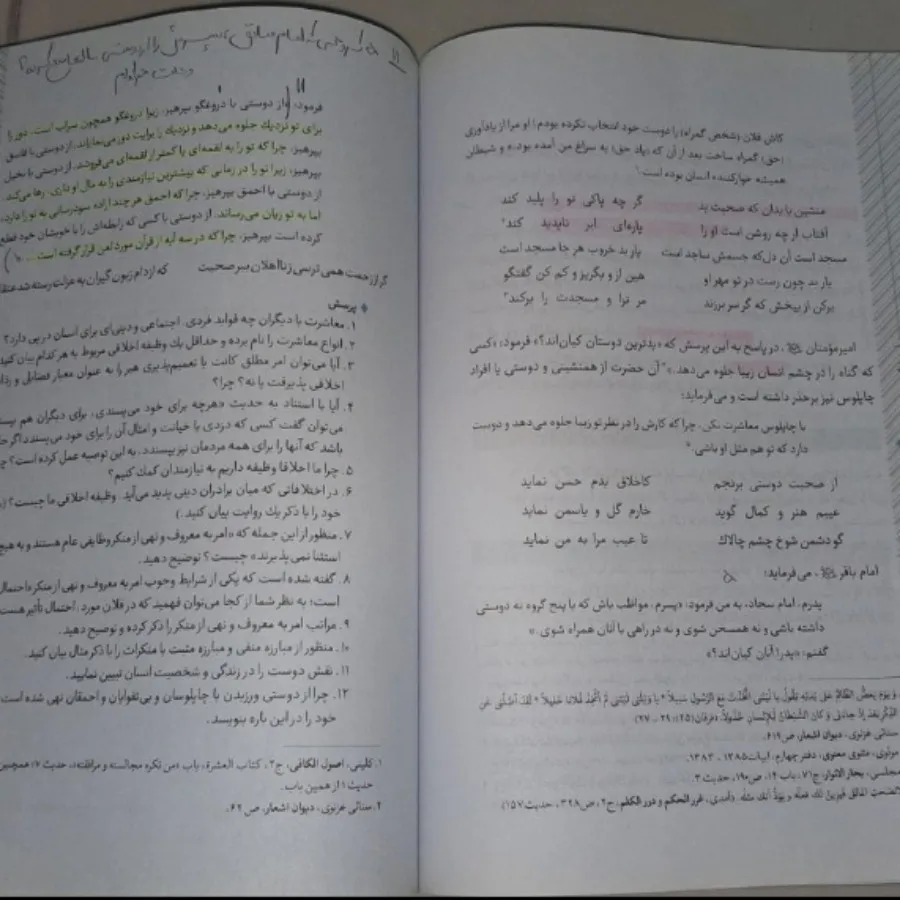 کاش فلان (شخص گمراه) را دوست خود انتخاب نکرده بودم! او مرا از یادآوری
(حق) گمراه ساخت بعد از آن که (یاد حق) به سراغ من آمده بود.» و شیطان
همیشه خوارکنندهٔ انسان بوده است.
منشین با بدان که صحبت بد گر چه پاکی تو را پلید کند
آفتاب ار چه روشن است او را پاره‌ای ابر ناپدید کند
مسجد است آن دل که جسمش ساجد است یار بد خروب هر جا مسجد است
یار بد چون رست در تو مهر او هین از او بگریز و کم کن گفتگو
برکن از بیخش که گر سر برزند مر ترا و مسجدت را برکند
امیرمؤمنان، در پاسخ به این پرسش که «بدترین دوستان کیان‌اند؟» فرمود: «کسی
که گناه را در چشم انسان زیبا جلوه می‌دهد.» آن حضرت از همنشینی و دوستی با افراد
چاپلوس نیز برحذر داشته است و می‌فرماید:
با چاپلوس معاشرت نکن، چرا که کارش را در نظر تو زیبا جلوه می‌دهد و دوست
دارد که تو هم مثل او باشی.
از صحبت دوستی برنجم کاخلاق بدم حسن نماید
عیبم هنر و کمال گوید خارم گل و یاسمن نماید
گو دشمن شوخ چشم چالاک تا عیب مرا به من نماید
امام باقر، می‌فرماید: ۵
پدرم، امام سجاد، به من فرمود: «پسرم، مواظب باش که با پنج گروه نه دوستی
داشته باشی و نه همسخن شوی و نه در راهی با آنان همراه شوی.»
گفتم: «پدر! آنان کیان‌اند؟»
وَ یَوْمَ یَعَضُّ الظَّالِمُ عَلَی یَدَیْهِ یَقُولُ یَا لَیْتَنِی اتَّخَذْتُ مَعَ الرَّسُولِ سَبِیلاً * یَا وَیْلَتَی لَیْتَنِی لَمْ أَتَّخِذْ فُلَاناً خَلِیلاً * لَقَدْ أَضَلَّنِی عَنِ
الذِّکْرِ بَعْدَ إِذْ جَاءَنِی وَ کَانَ الشَّیْطَانُ لِلْإِنسَانِ خَذُولاً. «فرقان (۲۵): ۲۹ - ۲۷»
سنائی غزنوی، دیوان اشعار، ص۶۱۹.
مولوی، مثنوی معنوی، دفتر چهارم، ابیات ۱۳۸۵ - ۱۳۸۳.
مجلسی، بحار الانوار، ج۷۱، باب ۱۴، ص۱۹۰، حدیث ۳.
آمدی، غرر الحکم و درر الکلم، ج۲، ص۳۲۸، حدیث ۱۵۷)
۱۱
فرمود: «از دوستی با دروغگو بپرهیز، زیرا دروغگو همچون سراب است. دور را
برای تو نزدیک جلوه می‌دهد و نزدیک را برایت دور می‌نمایاند. از دوستی با فاسق
بپرهیز، چرا که تو را به لقمه‌ای یا کمتر از لقمه‌ای می‌فروشد. از دوستی با بخیل
بپرهیز، زیرا تو را در زمانی که بیشترین نیازمندی را به مال او داری، رها می‌کند.
از دوستی با احمق بپرهیز، چرا که احمق هر چند اراده سودرسانی به تو را دارد،
اما به تو زیان می‌رساند. از دوستی با کسی که رابطه‌اش را با خویشان خود قطع
کرده است بپرهیز، چرا که در سه آیه از قرآن مورد لعن قرار گرفته است...»
گر از زحمت همی ترسی ز نااهلان ببر صحبت که از دام زبون گیران به عزلت رسته شد عنقا
پرسش
۱. معاشرت با دیگران چه فواید فردی، اجتماعی و دینی‌ای برای انسان در پی دارد؟
۲. انواع معاشرت را نام برده و حداقل یک وظیفه اخلاقی مربوط به هر کدام بیان کنید
۳. آیا می‌توان امر مطلق کانت یا تعمیم‌پذیری هیر را به عنوان معیار فضایل و رذا
اخلاقی پذیرفت یا نه؟ چرا؟
۴. آیا با استناد به حدیث «هرچه برای خود می‌پسندی، برای دیگران هم بپسند
می‌توان گفت کسی که دزدی یا خیانت و امثال آن را برای خود می‌پسندد اگر حا
باشد که آنها را برای همه مردمان نیز بپسندد، به این توصیه عمل کرده است؟ چ
۵. چرا ما اخلاقا وظیفه داریم به نیازمندان کمک کنیم؟
۶. در اختلافاتی که میان برادران دینی پدید می‌آید. وظیفه اخلاقی ما چیست؟
خود را با ذکر یک روایت بیان کنید.)
۷. منظور از این جمله که «امر به معروف و نهی از منکر وظایفی عام هستند و به هیچ
استثنا نمی‌پذیرند» چیست؟ توضیح دهید.
۸. گفته شده است که یکی از شرایط وجوب امر به معروف و نهی از منکر «احتمال
است؛ به نظر شما از کجا می‌توان فهمید که در فلان مورد، احتمال تأثیر هست
۹. مراتب امر به معروف و نهی از منکر را ذکر کرده و توضیح دهید.
۱۰. منظور از مبارزه منفی و مبارزه مثبت با منکرات را با ذکر مثال بیان کنید.
۱۱. نقش دوست را در زندگی و شخصیت انسان تبیین نمایید.
۱۲. چرا از دوستی ورزیدن با چاپلوسان و بی‌تقوایان و احمقان نهی شده است
خود را در این باره بنویسد.
۱. کلینی، اصول الکافی، ج۲، کتاب العشرة، باب «من تکره مجالسته و مرافقته»، حدیث ۷؛ همچنین
حدیث ۱ از همین باب.
۲. سنائی غزنوی، دیوان اشعار، ص۶۲.